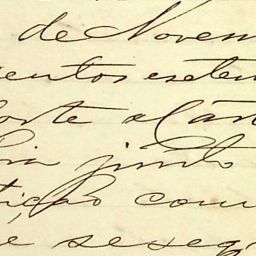 de Novem
entos e seten
orte a Can
ria junto
tição com
e se seg